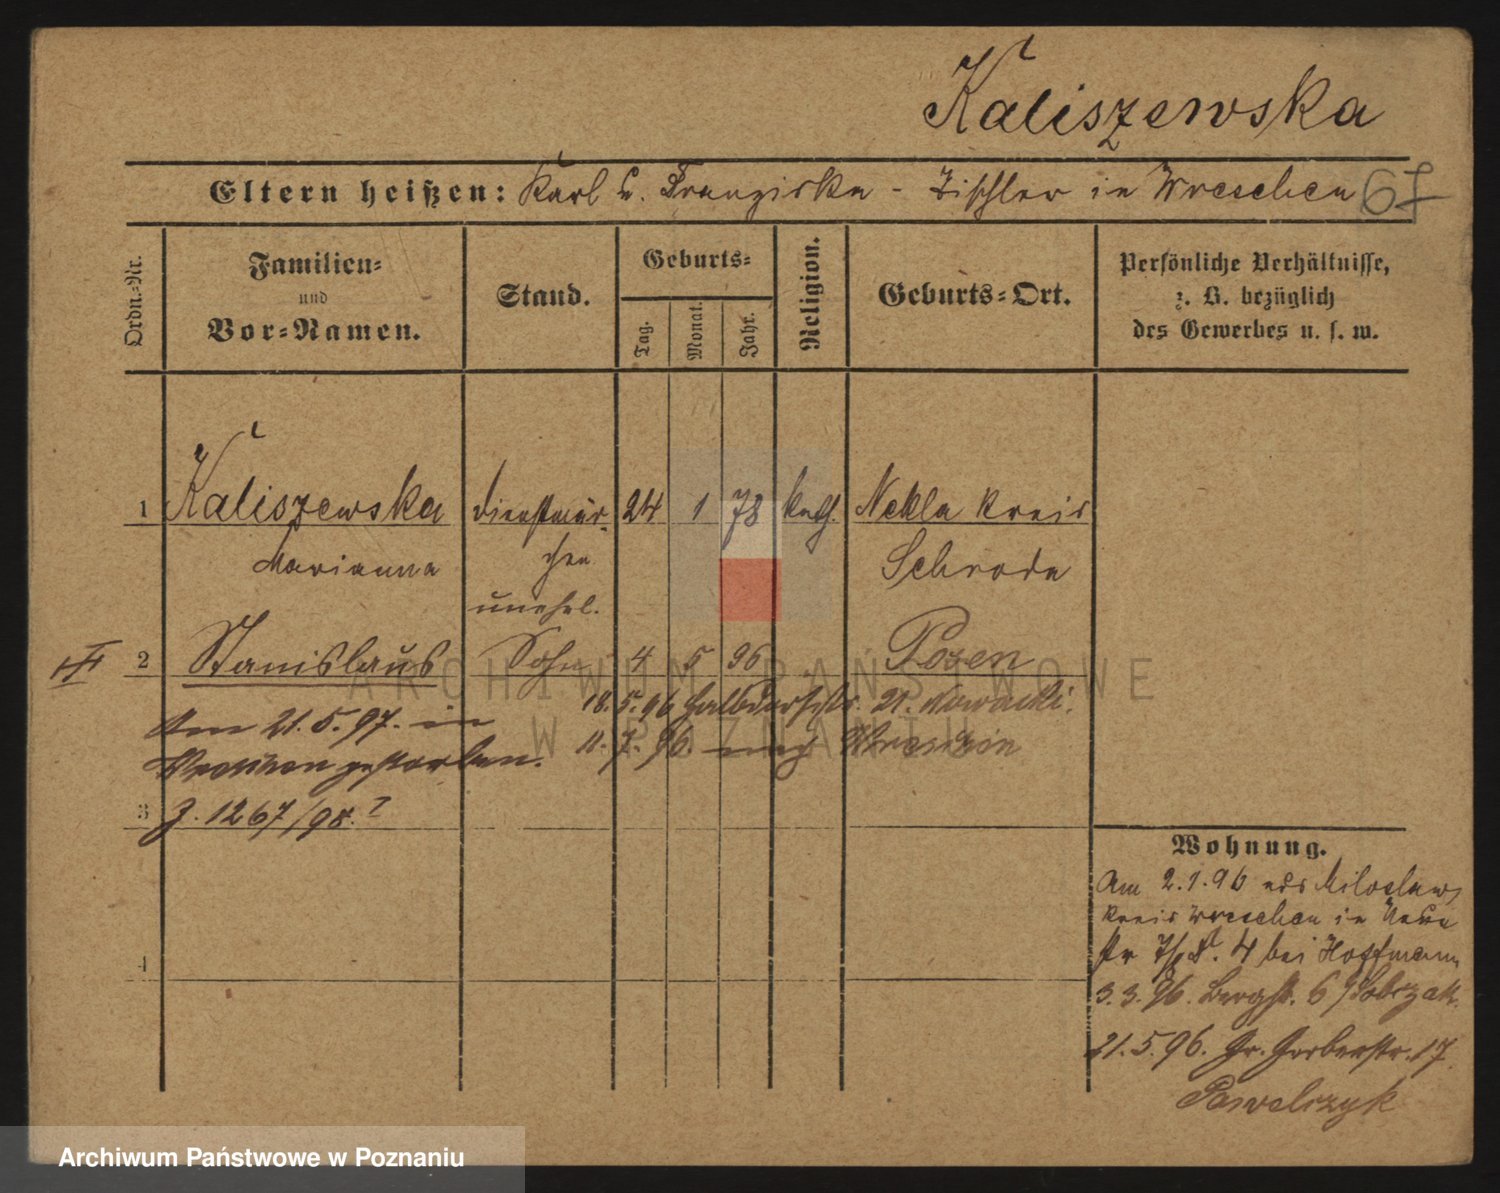 Kaliszewska
Eltern heißen: Karl u. Franziska - Tischler in Wreschen 67
Ordn.-Nr.
Familien-
und
Vor-Namen.
Stand.
Geburts-
Tag.
Monat.
Jahr.
Religion.
Geburts-Ort.
Persönliche Verhältnisse,
z. B. bezüglich
des Gewerbes u. s. w.
1 Kaliszewska Dienstmäd- 24 1 78 kath. Nekla Kreis
Marianna chen Schroda
unehl.
2 Stanislaus Sohn 4 5 96 Posen
18.5.96 Halbdorfstr. 21. Nowacki.
Am 21.5.97. in
11.7.96. nach Wreschen
Wreschen gestorben.
3 J. 1267/98. I
4
Wohnung.
Am 2.1.96 aus Miloslaw,
Kreis Wreschen in Neue
str 4 bei Hoffmann
3.3.96. Bergstr. 6 Dobrzak.
21.5.96. Gr. Gerberstr. 17
Pawelczyk
ARCHIWUM PAŃSTWOWE
W POZNANIU
Archiwum Państwowe w Poznaniu